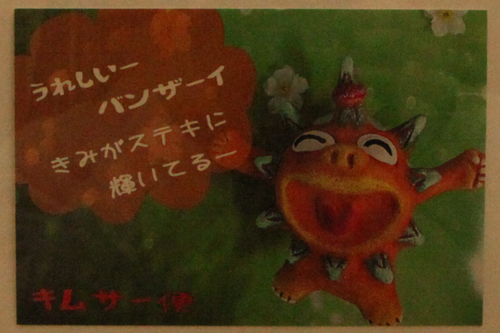 うれしいー
バンザーイ
きみがステキに
輝いてるー
キムサー便